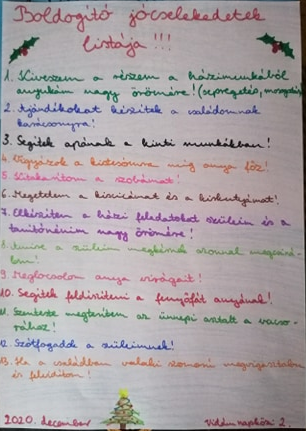 Boldogító jócselekedetek
listája !!!
1. Kiveszem a részem a házimunkából
anyukám nagy örömére! (sepregetés, mosogatás)
2. Ajándékokat készítek a családomnak
karácsonyra!
3. Segítek apának a kinti munkákban!
4. Vigyázok a kistesómra míg anya főz!
5. Kitakarítom a szobámat!
6. Megetetem a kiscicámat és a kiskutyámat!
7. Elkészítem a házi feladatokat szüleim és a
tanítónénim nagy örömére!
8. a szüleim megkérnek azonnal
9. Meglocsolom anya virágait!
10. Segítek feldíszíteni a fenyőfát anyának!
11. Szenteste megterítem az ünnepi asztalt a vacso-
rához!
12. Szótfogadok a szüleimnek!
13. Ha a családban valaki szomorú megvigasztalom
és felvidítom!
2020. december Vidám napközi 2.